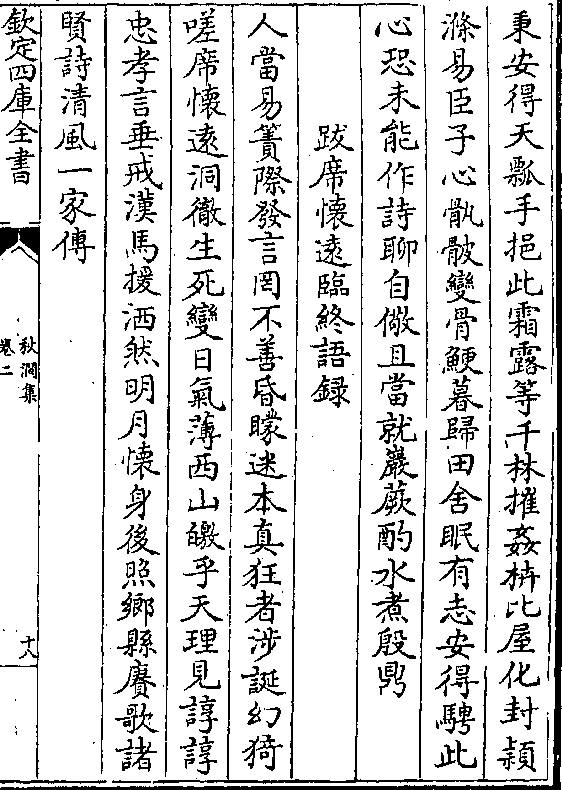 秉安得天瓢手挹此霜露等千林摧姦枿比屋化封潁
滌易臣子心骫骳變骨鯁暮歸田舍眠有志安得騁此
心恐未能作詩聊自儆且當就巖蕨酌水煮殷鼎
跋席懷遠臨終語録
人當易簀際發言罔不善昏矇迷本真狂者渉誕幻猗
嗟席懷遠洞徹生死變日氣薄西山皦乎天理見諄諄
忠孝言垂戒漢馬援洒然明月懷身後照鄉縣賡歌諸
賢詩清風一家傳
欽定四庫全書
秋澗集
卷二
十八